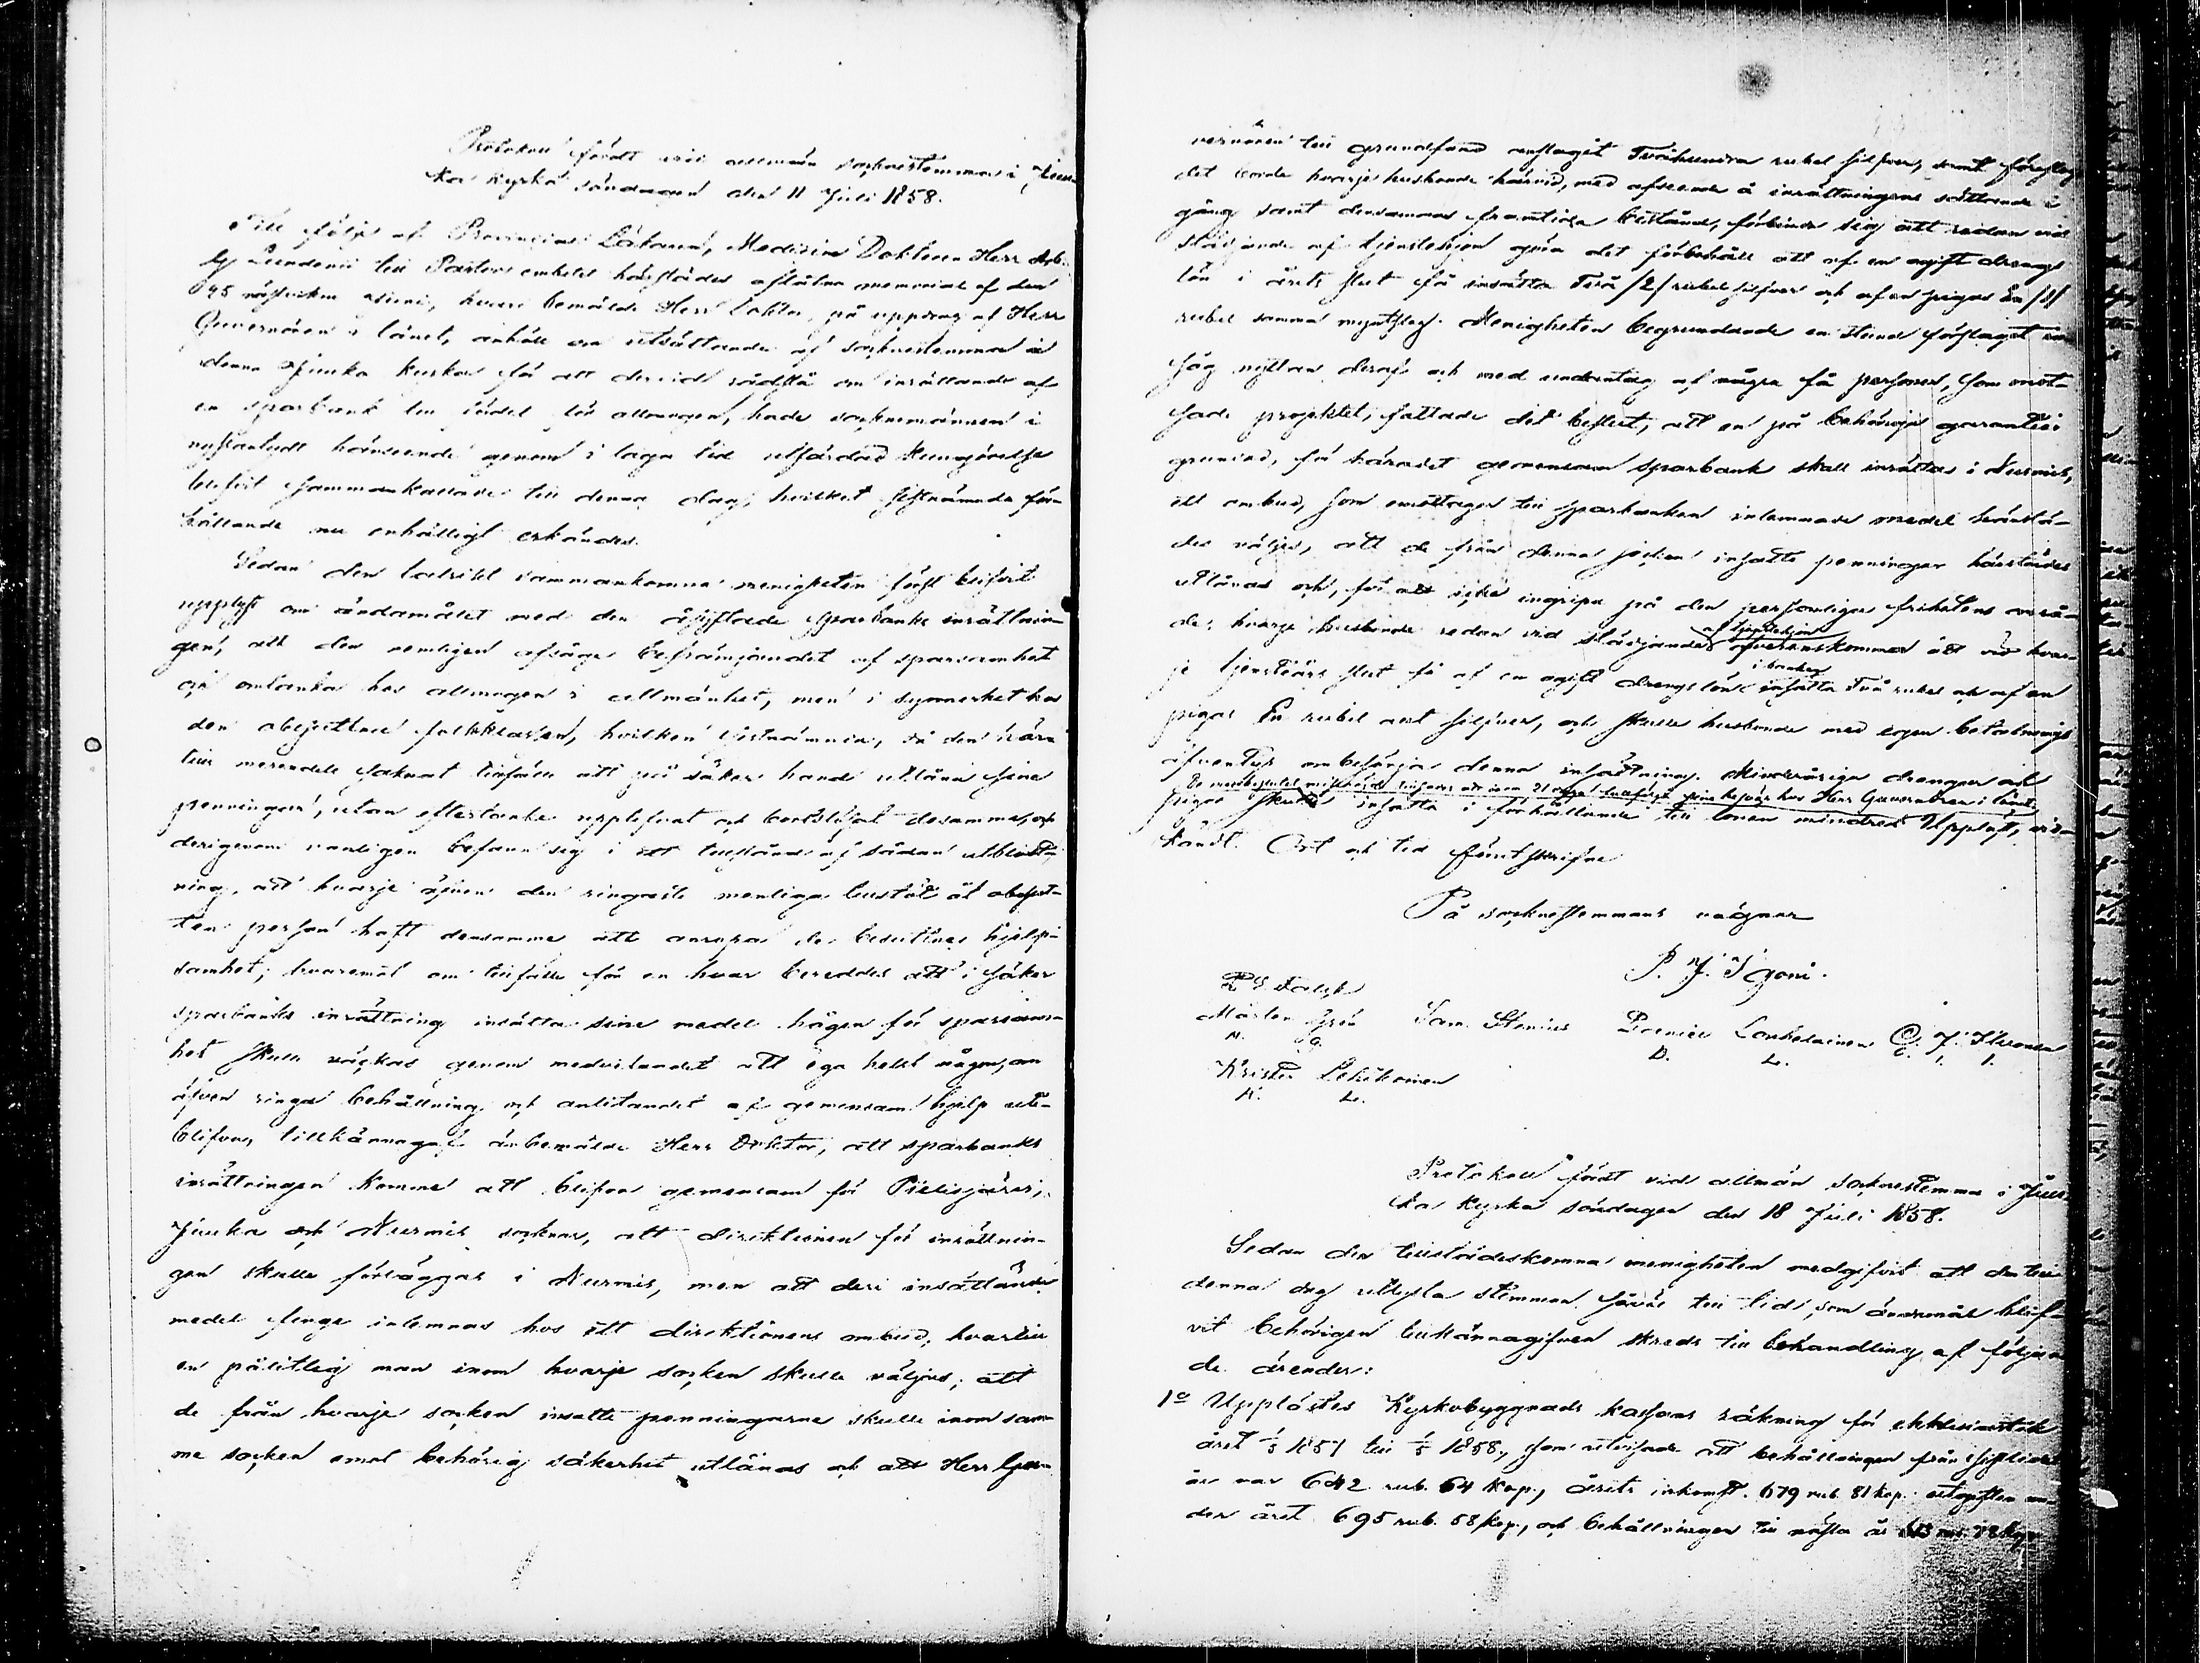 Protokoll fördt vid allmän sockenstemma i Juu-
ka kyrka söndagen den 11 Juli 1858.
Till följe af Provincial Läkaren, Medicine Doktoren Herr
Lundenii till Pastors embetet härstädes aflåtna memorial af den
nästvikne Junii, hvari bemälde Herr Doktor, på uppdrag af Herr
Guvernören i länet, anhöll om utsättande af sockenstemma i
denna Juuka kyrka för att dervid rådslå om inrättande af
en sparbank till fördel för allmogen, hade sockenmännen i
nyssantydt hänseende genom i laga tid utfärdad kungörelse
blifvit sammankallade till denna dag, hvilket sistnämnda för-
hållande nu enhälligt erkändes.
Sedan den talrikt sammankomna menigheten först blifvit
upplyst om ändamålet med den åsyftade sparbanks inrättnin-
gen, att den nemligen afsåge befrämjandet af sparsamhet
och omtanka hos allmogen i allmänhet, men i synnerhet hos
den obesuttna folkklassen, hvilken sistnämnda, då den här
till merendels saknat tillfälle att på säker hand utlåna sina
penningar, utan eftertanke upplefvat och bortslösat desamma, och
derigenom vanligen befann sig i ett tillstånd af sådan utblott-
ning, att hvarje äfven den ringaste menliga tillstöt åt obesut-
ten person haft densamma att anropa de besuttnes hjelp-
samhet; hvaremot om tillfälle för en hvar bereddes att i säker
sparbanks inrättning insätta sina medel hågen för sparsam-
het skulle väckas genom medvetandet att ega helst någon, om
äfven ringa behållning och anlitandet af gemensam hjelp ute-
blifva, tillkännagaf ofvanbemälde Herr Doktor, att sparbanks
inrättningen komme att blifva gemensam för Pielisjärvi,
Juuka och Nurmis socknar, att direktionen för inrättnin-
gen skulle förläggas i Nurmis, men att deri insättande
medel finge inlemnas hos ett direktionens ombud, hvartill
en pålitlig man inom hvarje socken skulle väljas; att
de från hvarje socken insatte penningarne skulle inom sam-
me socken emot behörig säkerhet utlånas och att Herr Gu-
vernören till grundfond anslagit Tvåhundra rubel silfver, samt föreslog
det borde hvarje husbonde härvid, med afseende å inrättningens sättande i
gång samt densammas framtida bestånd, förbinda sig att redan vid
städjande af tjenstehjon göra det förbehåll att af en ogift drengs
lön i årets slut få insätta Två /2/ rubel silfver och af en pigas En /1/
rubel samma myntslag. Menigheten begrundade en stund förslaget in-
såg nyttan deraf och med undantag af några få personer, som mot-
sade projektet, fattade det beslut, att en på behörige garantier
grundad, för häradet gemensam sparbank skall inrättas i Nurmis,
ett ombud, som emottager till sparbanken inlemnade medel härstä-
des väljes, att de från denna socken insatte penningar härstädes
utlånas och, för att icke ingripa på den personliga frihetens områ-
de, hvarje husbonde redan vid städjandet af tjenstehjon öfverenskommer att vid hvar-
je tjensteårs slut få af en ogift drengs lön i banken insätta Två rubel och af en
pigas En rubel allt silfver, och skulle husbonde med egen betalnings
äfventyr ombesörja denna insättning. Minderåriga drengar och
pigor skulle insätta i förhållande till lönen mindre. Upplöst, ved-
De med beslutet missnöjde hänvisas att inom 21 dagar härefter sina besvär hos Herr Guvernören i länet
kändt. Ort och tid förutskrifne
På sockenstemmans vägnar
P. J. Ignni.
Mårten Grén Sam. Stenius Daniel Lonkelainen J. Ikonen
M. G. D. L. I.
Krister Lehikoinen
K. L.
Protokoll fördt vid allmän sockenstemma i Juu-
ka kyrka söndagen den 18 Juli 1858.
Sedan den tillstädeskomna menigheten medgifvit att den till
denna dag utlysta stemman såväl till tid, som ändamål blif-
vit behörigen tillkännagifven skreds till behandling af följan-
de ärender:
1o Upplästes Kyrkobyggnads kassans räkning för ekklesiastik
året 1/5 1857 till 1/5 1858, som utvisade att behållningen från sistlidet
år var 642 rub. 64 kop., årets inkomst 679 rub. 81 kop. utgiften un-
der året 695 rub. 58 kop., och behållningen till nästa år